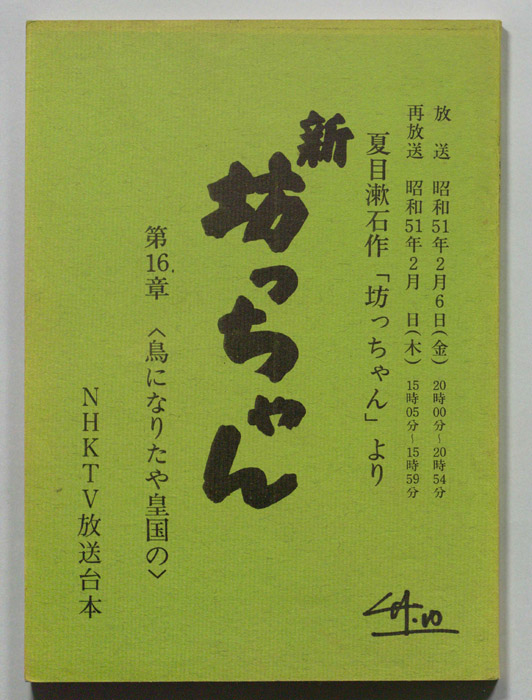 放　送　昭和51年2月6日(金) 20時00分〜20時54分
再放送　昭和51年2月　日(木) 15時05分〜15時59分
夏目漱石作「坊っちゃん」より
新
坊っちゃん
第16章　〈鳥になりたや皇国の〉
NHKTV放送台本